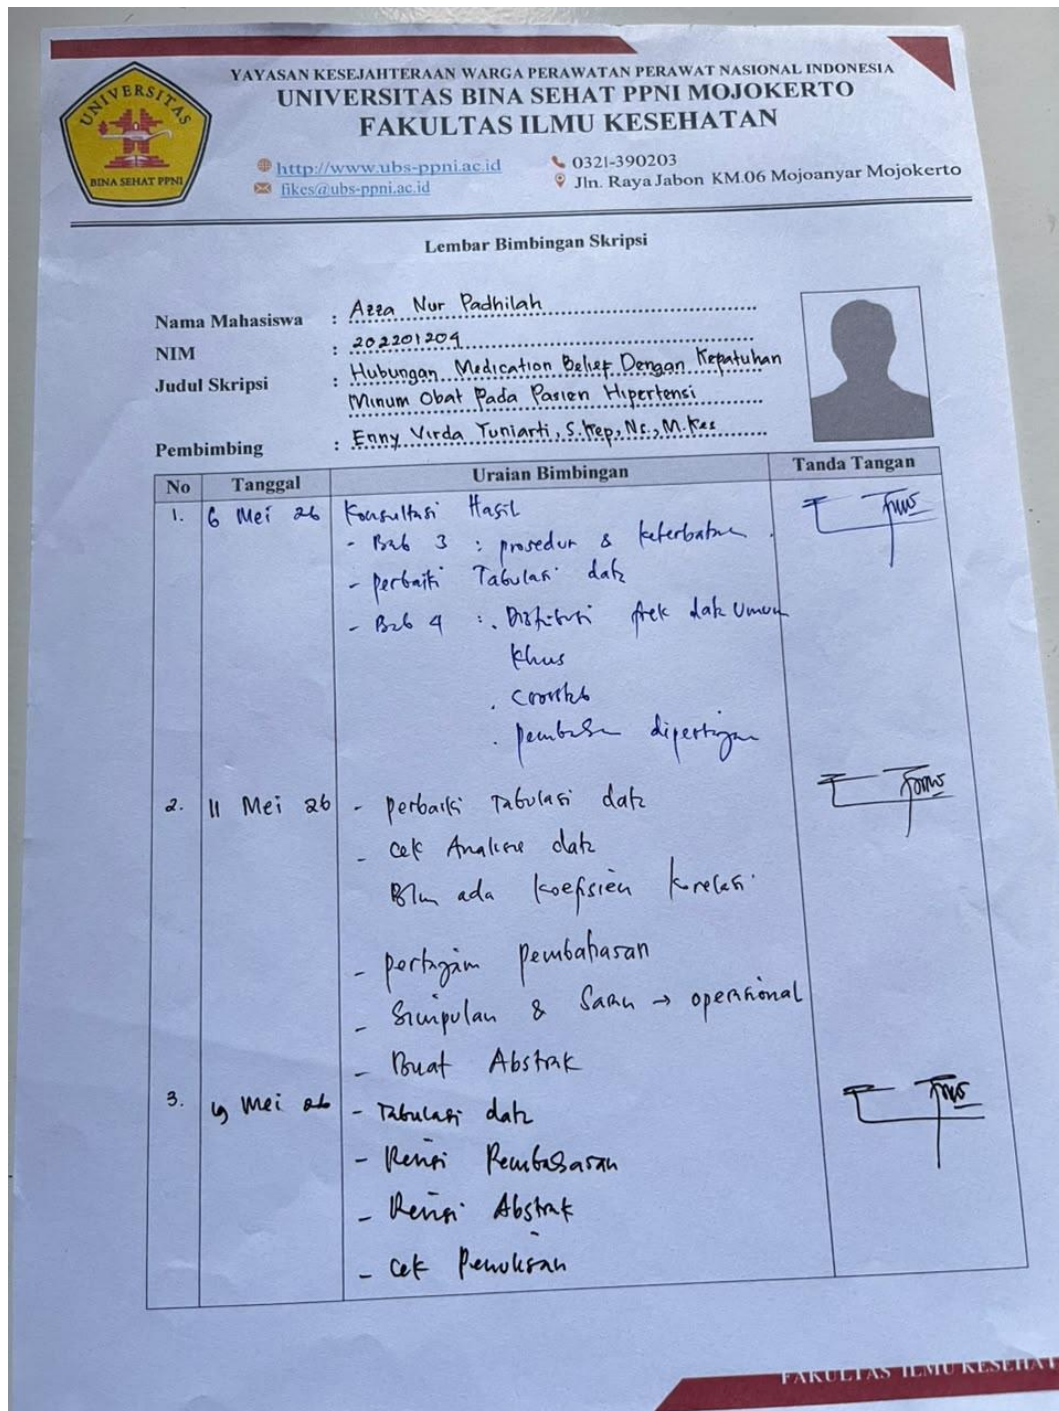 YAYASAN KESEJAHTERAAN WARGA PERAWATAN PERAWAT NASIONAL INDONESIA
UNIVERSITAS BINA SEHAT PPNI MOJOKERTO
FAKULTAS ILMU KESEHATAN
UNIVERSITAS
BINA SEHAT PPNI
http://www.ubs-ppni.ac.id 0321-390203
fikes@ubs-ppni.ac.id Jln. Raya Jabon KM.06 Mojoanyar Mojokerto
Lembar Bimbingan Skripsi
Nama Mahasiswa : Azza Nur Padhilah
NIM : 202201204
Judul Skripsi : Hubungan Medication Belief Dengan Kepatuhan
Minum Obat Pada Pasien Hipertensi
Pembimbing : Enny Virda Yuniarti, S.Kep, Ns., M.Kes
No Tanggal Uraian Bimbingan Tanda Tangan
1. 6 Mei 26 Konsultasi Hasil
- Bab 3 : prosedur & keterbatasan
- perbaiki Tabulasi data
- Bab 4 : . Distribusi frek data umum
khus
. crosstab
. pembahasan dipertajam
2. 11 Mei 26 - perbaiki Tabulasi data
- cek Analisa data
Blm ada koefisien korelasi
- pertajam pembahasan
- Simpulan & Saran → operasional
- Buat Abstrak
3. Mei 26 - Tabulasi data
- Revisi Pembahasan
- Revisi Abstrak
- cek Penulisan
FAKULTAS ILMU KESEHAT